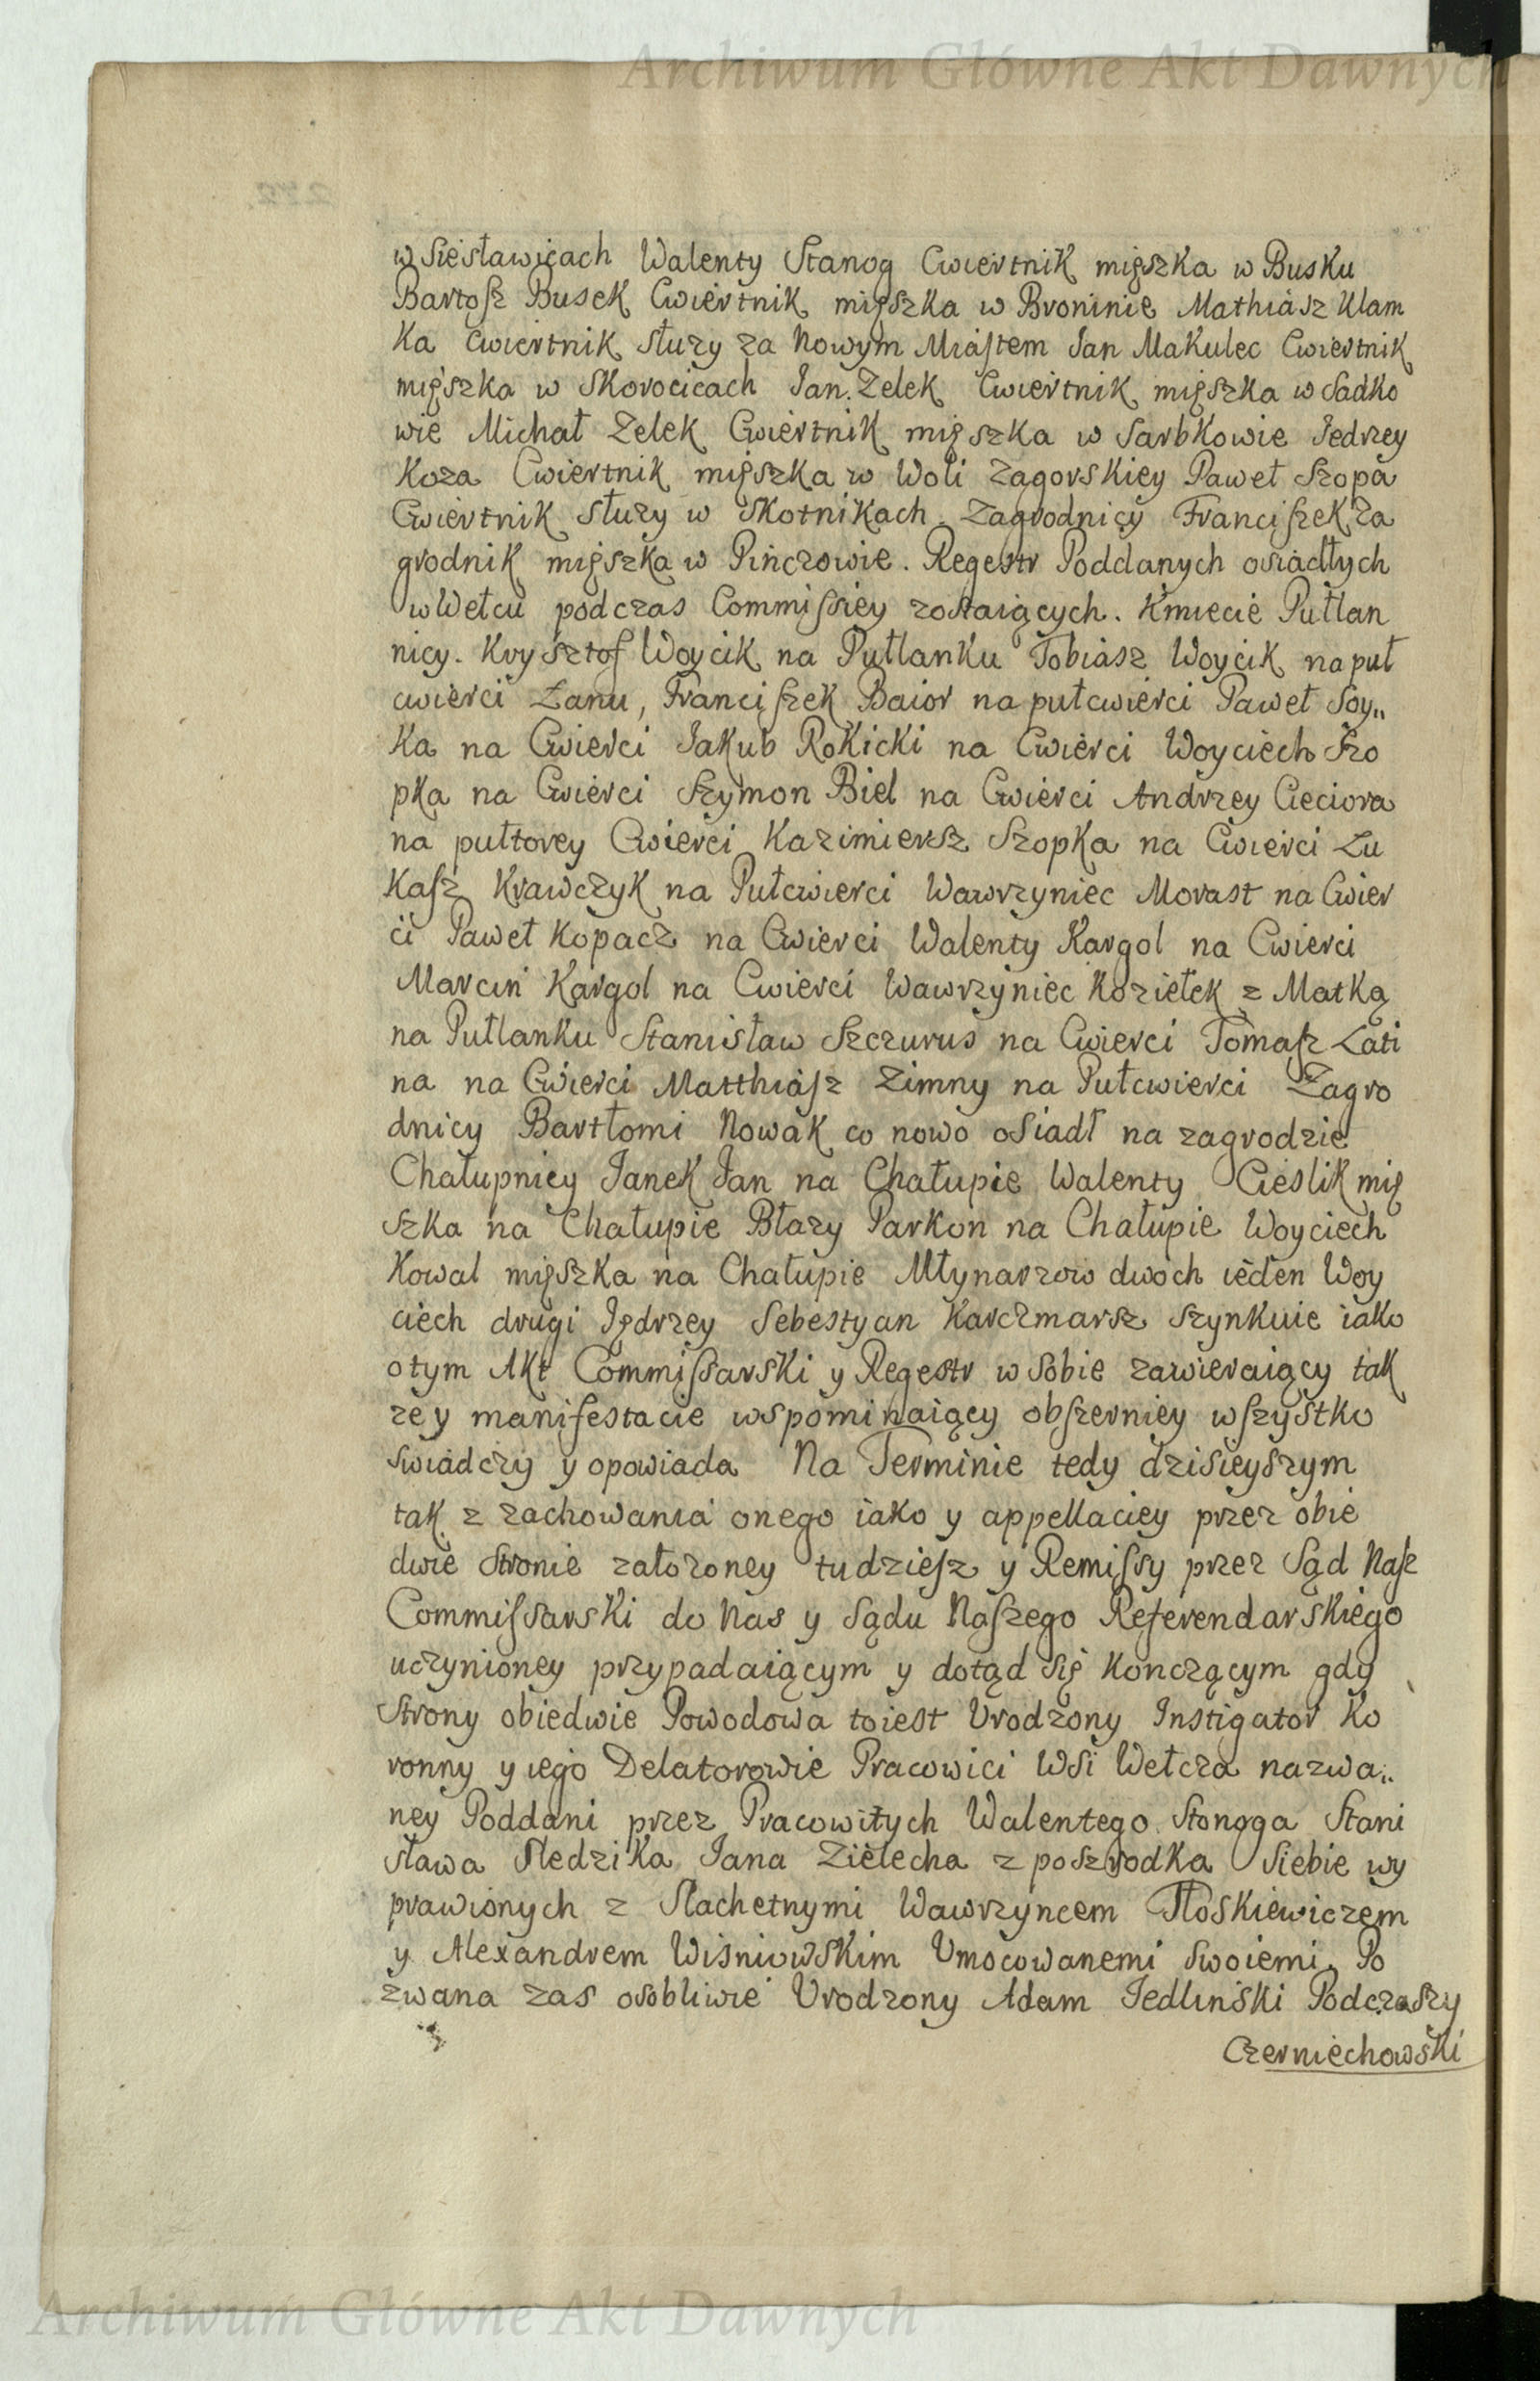 Archiwum Główne Akt Dawnych
w Siesławicach Walenty Stanog Cwiertnik mięszka w Busku
Bartosz Busek Cwiertnik mięszka w Broninie Mathiasz Klam
ka Cwiertnik słuzy za Nowym Miastem Jan Makulec Cwiertnik
mięszka w Skorocicach Jan Zelek Cwiertnik mięszka w Sadko
wie Michał Zelek Cwiertnik mięszka w Sarbkowie Jedrzey
Koza Cwiertnik mięszka w Woli Zagorskiey Paweł Szopa
Cwiertnik słuzy w Skotnikach. Zagrodnicy Franciszek Za
grodnik mięszka w Pinczowie. Regestr Poddanych osiadłych
w Wełcu podczas Commissiey zostaiących. Kmiecie Pułlan
nicy. Krysztof Woycik na Pułlanku Tobiasz Woycik na puł
cwierci Łanu, Franciszek Baior na pułcwierci Paweł Soy„
ka na Cwierci Jakub Rokicki na Cwierci Woyciech Szo
pka na Cwierci Szymon Biel na Cwierci Andrzey Cieciora
na pułtorey Cwierci Kazimiersz Szopka na Cwierci Łu
kasz Krawczyk na Pułcwierci Wawrzyniec Morast na Cwier
ci Paweł Kopacz na Cwierci Walenty Kargol na Cwierci
Marcin Kargol na Cwierci Wawrzyniec Koziełek z Matką
na Pułlanku Stanisław Szczurus na Cwierci Tomasz Łati
na na Cwierci Matthiasz Zimny na Pułcwierci Zagro
dnicy Bartłomi Nowak co nowo osiadł na zagrodzie
Chałupnicy Janek Jan na Chałupie Walenty Cieslik mię
szka na Chałupie Błazy Parkon na Chałupie Woyciech
Kowal mięszka na Chałupie Młynarzow dwoch ieden Woy
ciech drugi Jędrzey Sebestyan Karczmarsz szynkuie iako
o tym Akt Commissarski y Regestr w sobie zawieraiący tak
ze y manifestacie wspominaiący obszerniey wszystko
swiadczy y opowiada Na Terminie tedy dzisieyszym
tak z zachowania onego iako y appellaciey przez obie
dwie stronie załozoney tudziesz y Remissy przez Sąd Nasz
Commissarski do Nas y Sądu Naszego Referendarskiego
uczynioney przypadaiącym y dotąd się konczącym gdy
Strony obiedwie Powodowa toiest Urodzony Instigator Ko
ronny y iego Delatorowie Pracowici Wsi Wełcza nazwa„
ney Poddani przez Pracowitych Walentego Stonoga Stani
sława Sledzika Jana Zielecha z poszrodka siebie wy
prawionych z Slachetnymi Wawrzyncem Płoskiewiczem
y Alexandrem Wisniowskim Umocowanemi swoiemi, Po
zwana zas osobliwie Urodzony Adam Jedlinski Podczaszy
Czerniechowski
Archiwum Główne Akt Dawnych